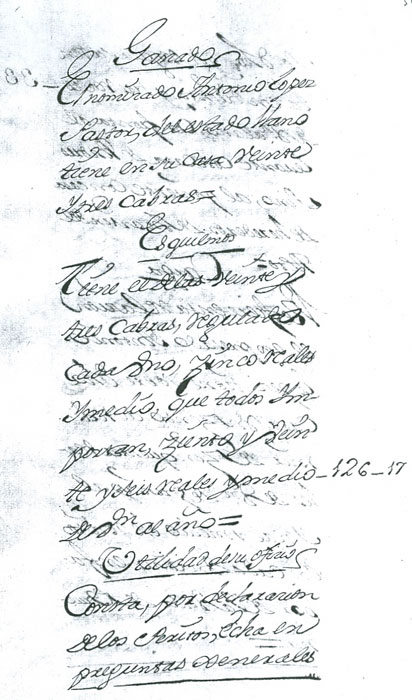 Ganado
El nominado Antonio Lopez
Pastor, del estado Llano
tiene en su casa Veinte
y tres Cabras =
Esquilmos
Tiene el de las Veinte y
tres Cabras, regulado
Cada Uno, Zinco reales
Ymedio, que todos Ym-
portan, Ziento y Vein
te y seis reales y medio - 126 - 17
de Vn al año =
Utilidad de su ofizio
Consta, por declarazion
delos Peritos, echa en
preguntas Generales